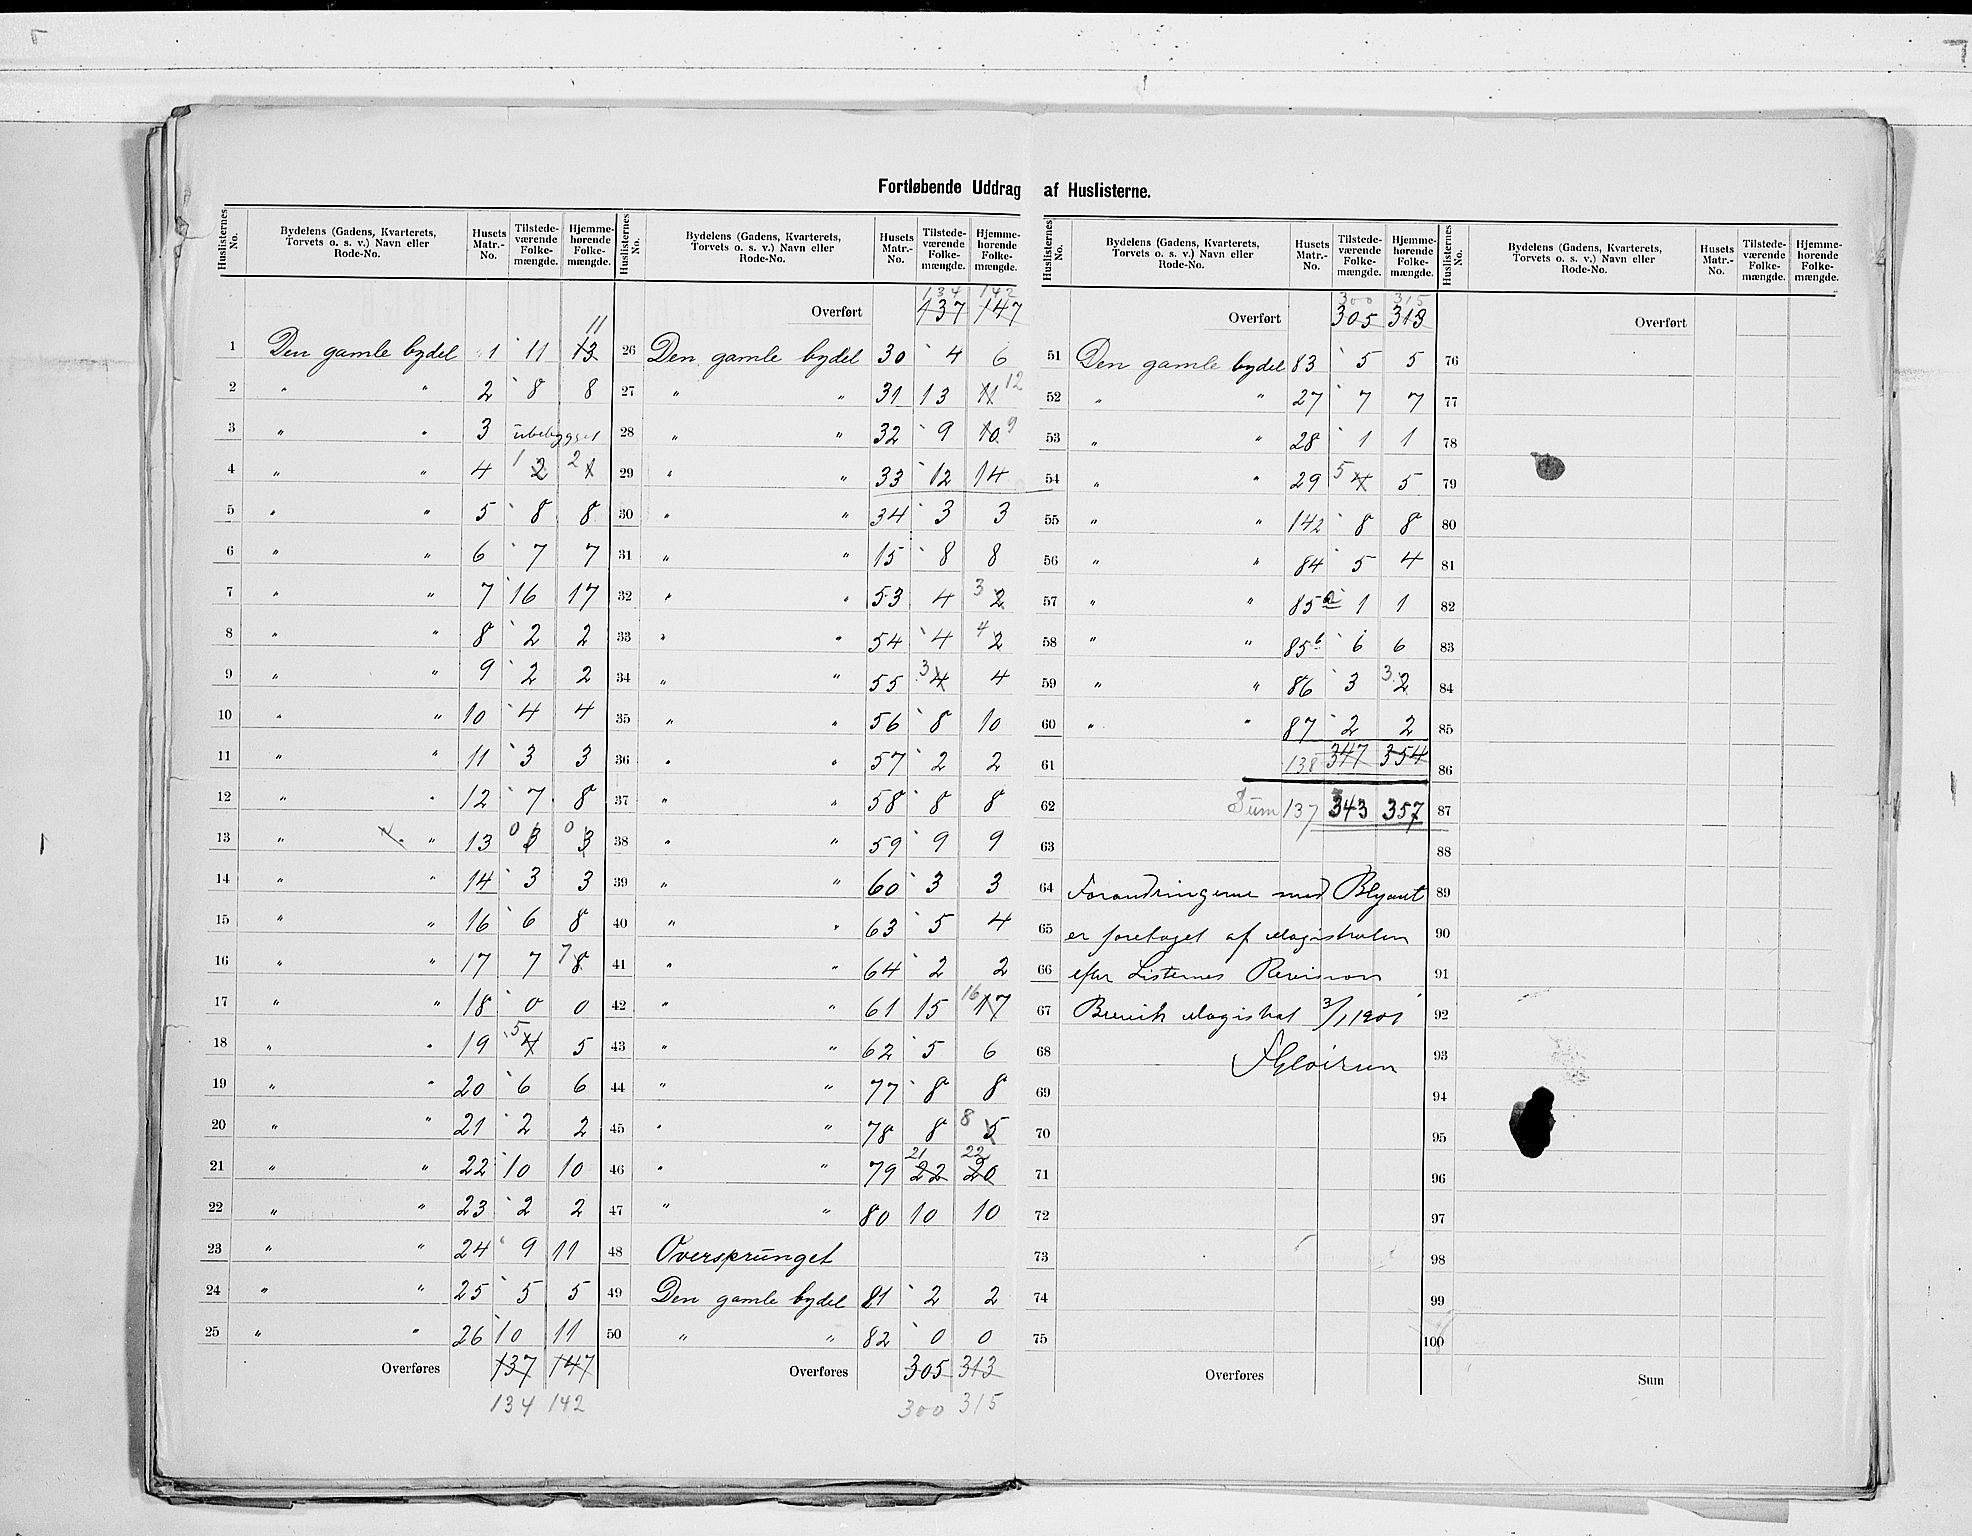 Fortløbende Uddrag af Huslisterne.
Huslisternes No. | Bydelens (Gadens, Kvarterets, Torvets o. s. v.) Navn eller Rode-No. | Husets Matr.-No. | Tilstede-værende Folke-mængde. | Hjemme-hørende Folke-mængde.
1 Den gamle bydel 1 11 13 11
2 „ „ 2 8 8
3 „ „ 3 ubebygget
4 „ „ 4 1 2 2 1
5 „ „ 5 8 8
6 „ „ 6 7 7
7 „ „ 7 16 17
8 „ „ 8 2 2
9 „ „ 9 2 2
10 „ „ 10 4 4
11 „ „ 11 3 3
12 „ „ 12 7 8
13 „ „ 13 0 3 0 3
14 „ „ 14 3 3
15 „ „ 16 6 8
16 „ „ 17 7 7 8
17 „ „ 18 0 0
18 „ „ 19 5 4 5
19 „ „ 20 6 6
20 „ „ 21 2 2
21 „ „ 22 10 10
22 „ „ 23 2 2
23 „ „ 24 9 11
24 „ „ 25 5 5
25 „ „ 26 10 11
Overføres 137 147
134 142
Huslisternes No. | Bydelens (Gadens, Kvarterets, Torvets o. s. v.) Navn eller Rode-No. | Husets Matr.-No. | Tilstede-værende Folke-mængde. | Hjemme-hørende Folke-mængde.
134 142
Overført 137 147
26 Den gamle bydel 30 4 6
27 „ „ 31 13 11 12
28 „ „ 32 9 10 9
29 „ „ 33 12 14
30 „ „ 34 3 3
31 „ „ 15 8 8
32 „ „ 53 4 3 2
33 „ „ 54 4 4 2
34 „ „ 55 3 4 4
35 „ „ 56 8 10
36 „ „ 57 2 2
37 „ „ 58 8 8
38 „ „ 59 9 9
39 „ „ 60 3 3
40 „ „ 63 5 4
41 „ „ 64 2 2
42 „ „ 61 15 16 17
43 „ „ 62 5 6
44 „ „ 77 8 8
45 „ „ 78 8 8 5
46 „ „ 79 21 22 22 20
47 „ „ 80 10 10
48 Oversprunget
49 Den gamle bydel 81 2 2
50 „ „ 82 0 0
Overføres 305 313
300 315
Huslisternes No. | Bydelens (Gadens, Kvarterets, Torvets o. s. v.) Navn eller Rode-No. | Husets Matr.-No. | Tilstede-værende Folke-mængde. | Hjemme-hørende Folke-mængde.
300 315
Overført 305 313
51 Den gamle bydel 83 5 5
52 „ „ 27 7 7
53 „ „ 28 1 1
54 „ „ 29 5 4 5
55 „ „ 142 8 8
56 „ „ 84 5 4
57 „ „ 85a 1 1
58 „ „ 85b 6 6
59 „ „ 86 3 3 2
60 „ „ 87 2 2
61 138 347 354
62 Sum 137 343 357
63
64 Forandringerne med Blyant
65 er foretaget af Magistraten
66 efter Listernes Revision
67 Brevik Magistrat 3/1 1901
68
69
70
71
72
73
74
75
Overføres
Huslisternes No. | Bydelens (Gadens, Kvarterets, Torvets o. s. v.) Navn eller Rode-No. | Husets Matr.-No. | Tilstede-værende Folke-mængde. | Hjemme-hørende Folke-mængde.
Overført
76
77
78
79
80
81
82
83
84
85
86
87
88
89
90
91
92
93
94
95
96
97
98
99
100
Sum